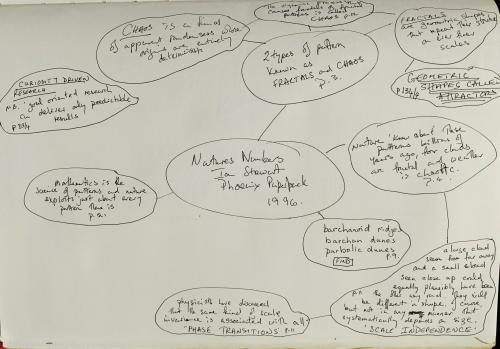 CHAOS is a kind
of apparent randomness whose
origins are entirely
deterministic
CHAOS P.11.
FRACTALS
are geometric shapes
that repeat their structure
on finer finer
scales
GEOMETRIC
SHAPES CALLED
ATTRACTORS
CURIOSITY DRIVEN
RESEARCH
N.B. 'goal oriented research
can deliver only predictable
results
2 types of pattern
known as
FRACTALS and CHAOS
p. 3.
Natures Numbers
Ian Stewart
Phoenix Paperback
1996.
Nature 'knew about these
patterns billions of
years ago, for clouds
are fractal and weather
is chaotic.
p. 4.
mathematics is the
science of patterns and nature
exploits just about every
pattern there is
barchanoid ridges
barchan dunes
parabolic dunes
P.9.
FIND
a large cloud
seen from far away
and a small cloud
seen close up could
equally plausibly have been
the other way round. They will
be different in shape, of course,
but not in any manner that
systematically depends on size.
'SCALE INDEPENDENCE.'
physicists have discovered
that the same kind of scale
invariance is associated with all
'PHASE TRANSITIONS' P.11